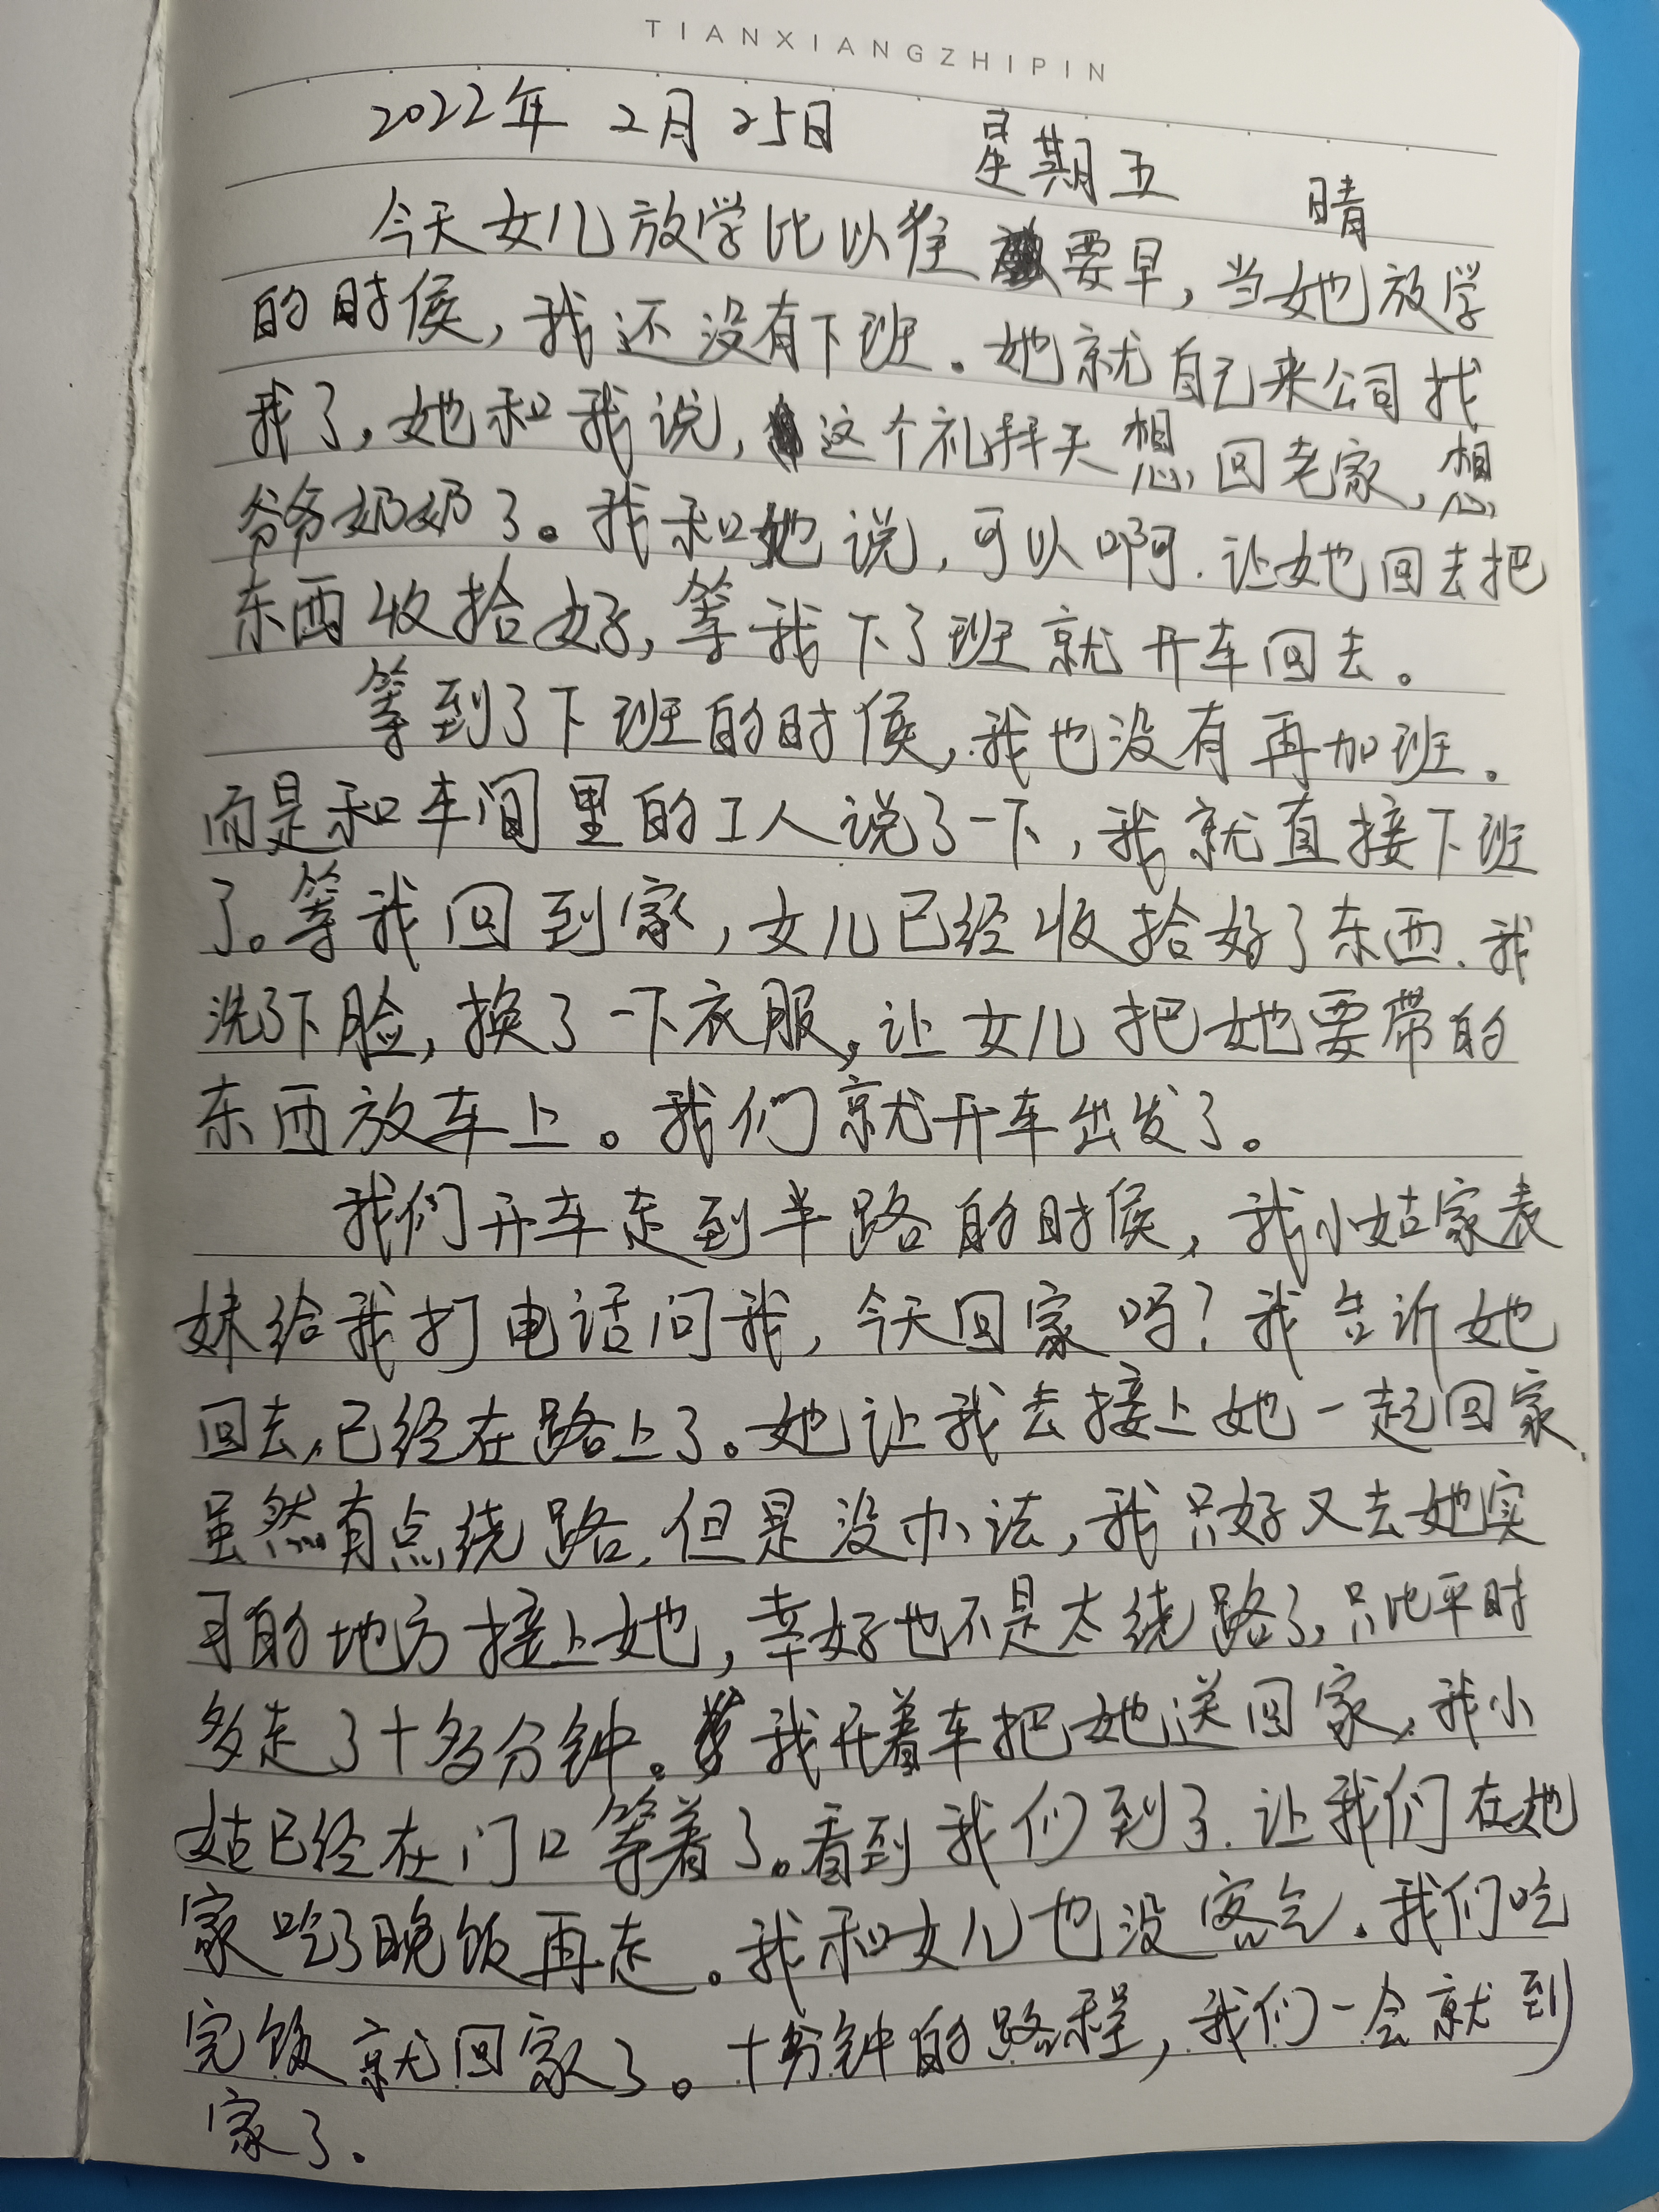 TIANXIANGZHIPIN
2022年 2月25日 星期五 晴
今天女儿放学比以往要早,当她放学
的时候,我还没有下班。她就自己来公司找
我了,她和我说,这个礼拜天想回老家,想
爷爷奶奶了。我和她说,可以啊.让她回去把
东西收拾好,等我下了班就开车回去。
等到了下班的时候,我也没有再加班。
而是和车间里的工人说了一下,我就直接下班
了。等我回到家,女儿已经收拾好了东西.我
洗了下脸,换了一下衣服,让女儿把她要带的
东西放车上。我们就开车出发了。
我们开车走到半路的时候,我小姑家表
妹给我打电话问我,今天回家吗?我告诉她
回去,已经在路上了。她让我去接上她一起回家.
虽然有点绕路,但是没办法,我只好又去她实
习的地方接上她,幸好也不是太绕路了,只比平时
多走了十多分钟。我开着车把她送回家,我小
姑已经在门口等着了。看到我们到了.让我们在她
家吃了晚饭再走。我和女儿也没客气.我们吃
完饭就回家了。十分钟的路程,我们一会就到
家了.